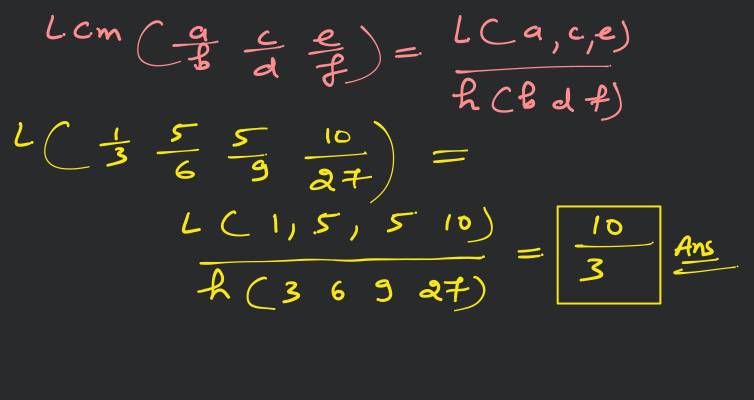 Lcm ( a/b c/d e/f ) = L(a,c,e) / h(b d f)
L ( 1/3 5/6 5/9 10/27 ) =
L ( 1, 5, 5 10) / h ( 3 6 9 27) = 10/3 Ans